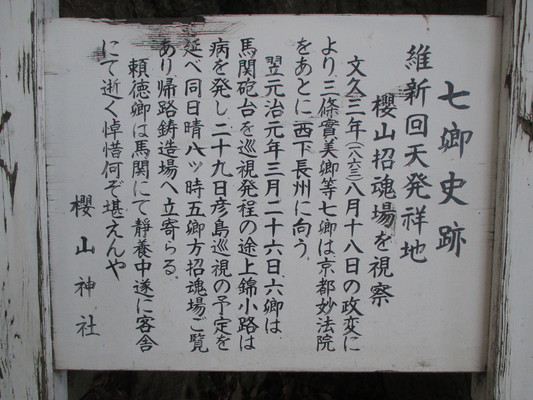 七卿史跡
維新回天発祥地
櫻山招魂場を視察
文久三年(一八六三)八月十八日の政変に
より、三條實美卿等七卿は京都妙法院
をあとに西下長州に向う。
翌元治元年三月二十六日、六卿は
馬関砲台を巡視発程の途上錦小路は
病を発し、二十九日彦島巡視の予定を
延べ同日晴八ッ時五卿方招魂場ご覧
あり帰路鋳造場へ立寄らる。
頼徳卿は馬関にて静養中遂に客舎
にて逝く悼惜何ぞ堪えんや
櫻山神社